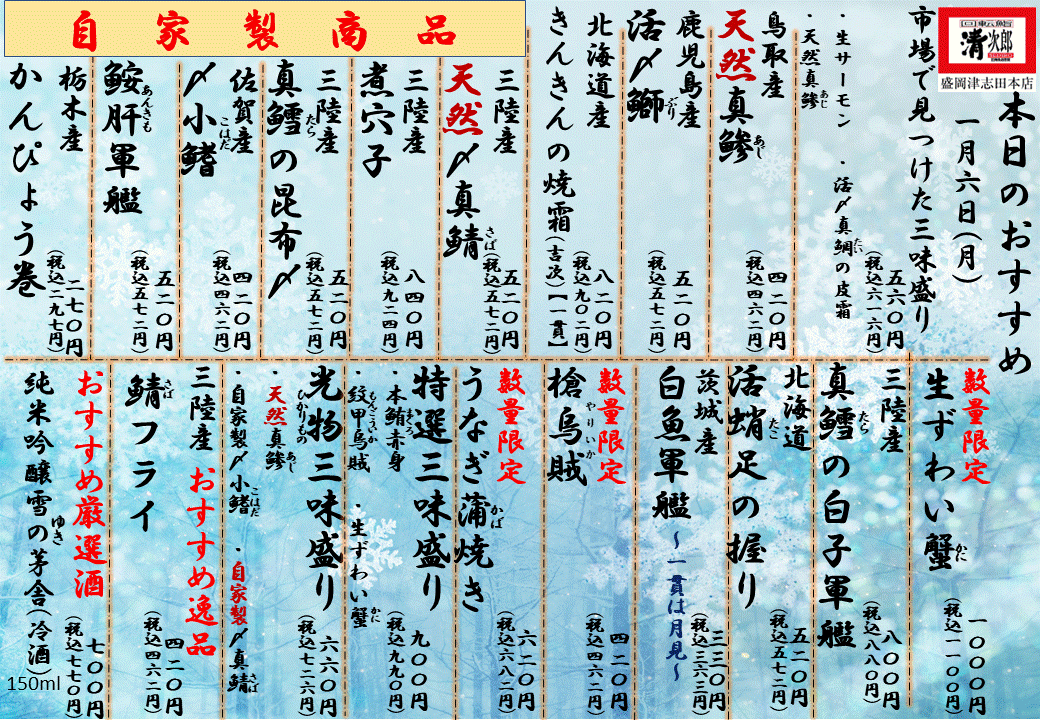 回転鮨
清次郎
盛岡津志田本店
本日のおすすめ
一月六日(月)
市場で見つけた三味盛り
・生サーモン ・活〆真鯛の皮霜
たい
・天然真鯵
あじ
五六〇円
(税込六一六円)
鳥取産
天然真鯵
あじ
四二〇円
(税込四六二円)
鹿児島産
活〆鰤
ぶり
五二〇円
(税込五七二円)
北海道産
きんきんの焼霜(吉次)【一貫】
八二〇円
(税込九〇二円)
自家製商品
三陸産
天然〆真鯖
さば
五二〇円
(税込五七二円)
三陸産
煮穴子
八四〇円
(税込九二四円)
三陸産
真鱈の昆布〆
たら
五二〇円
(税込五七二円)
佐賀産
〆小鰭
こはだ
四二〇円
(税込四六二円)
鮟肝軍艦
あんきも
五二〇円
(税込五七二円)
栃木産
かんぴょう巻
二七〇円
(税込二九七円)
数量限定
生ずわい蟹
かに
一〇〇〇円
(税込一一〇〇円)
三陸産
真鱈の白子軍艦
たら
八〇〇円
(税込八八〇円)
北海道
活蛸足の握り
たこ
五二〇円
(税込五七二円)
茨城産
白魚軍艦 ～一貫は月見～
三三〇円
(税込三六三円)
数量限定
槍烏賊
やりいか
四二〇円
(税込四六二円)
数量限定
うなぎ蒲焼き
かば
六二〇円
(税込六八二円)
特選三味盛り
・本鮪赤身
まぐろ
・紋甲烏賊 ・生ずわい蟹
もんごういか
かに
九〇〇円
(税込九九〇円)
光物三味盛り
ひかりもの
・天然真鯵
あじ
・自家製〆小鰭 ・自家製〆真鯖
こはだ
さば
六六〇円
(税込七二六円)
おすすめ逸品
三陸産
鯖フライ
さば
四二〇円
(税込四六二円)
おすすめ厳選酒
純米吟醸雪の茅舎(冷酒)
ゆき
150ml
七〇〇円
(税込七七〇円)